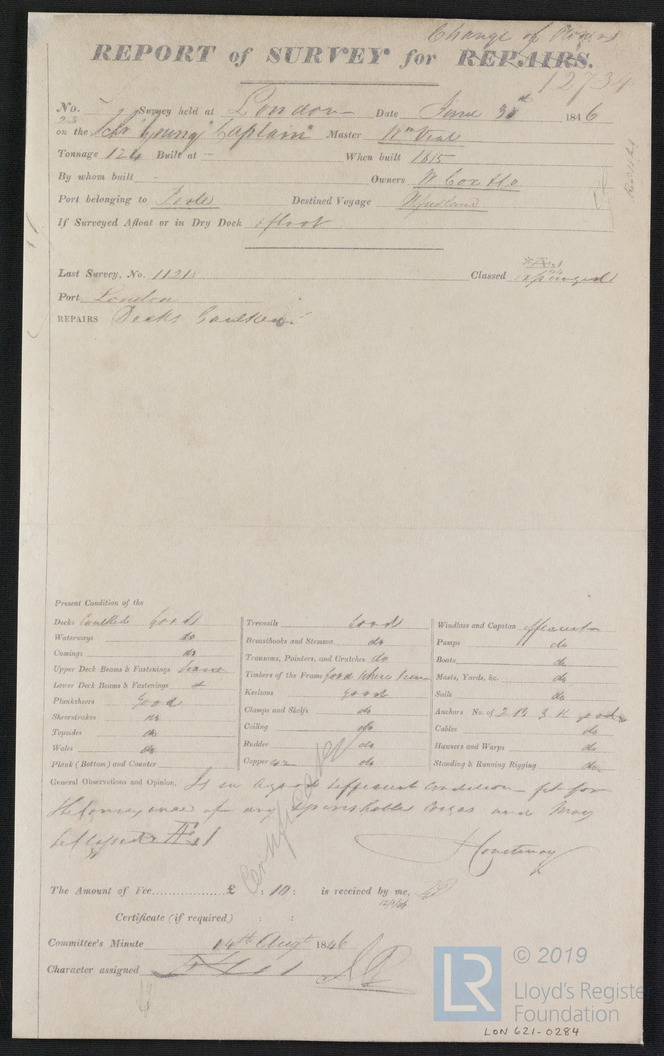 Change of Owners
REPORT of SURVEY for REPAIRS.
12734
No. Survey held at London Date June 30th 1846
23 on the Schr "Young Captain" Master Wm Veal
Tonnage 124 Built at — When built 1815
By whom built — Owners W Cox & Co
Port belonging to Poole Destined Voyage
If Surveyed Afloat or in Dry Dock afloat
Last Survey, No. Classed expunged
Port London
REPAIRS Decks Caulked
Present Condition of the
Decks Caulked Good
Waterways do
Comings do
Upper Deck Beams & Fastenings
Lower Deck Beams & Fastenings
Planksheers Good
Sheerstrakes do
Topsides do
Wales do
Plank (Bottom) and Counter
Treenails Good
Breasthooks and Stemson do
Transoms, Pointers, and Crutches do
Timbers of the Frame Good where seen
Keelsons good
Clamps and Shelfs do
Ceiling do
Rudder do
Copper 42 do
Windlass and Capstan efficient
Pumps do
Boats do
Masts, Yards, &c. do
Sails do
Anchors No. of 2 B 3 K good
Cables do
Hawsers and Warps do
Standing & Running Rigging do
General Observations and Opinion, Is in a good & efficient condition fit for
the conveyance of any perishable cargo and may
be classed Æ 1
Courtenay
Certificate
The Amount of Fee............... £ : 10 : is received by me,
Certificate (if required) : :
Committee's Minute 14th Augt 1846
Character assigned Æ 1
© 2019
LR
Lloyd's Register
Foundation
LON 621-0284